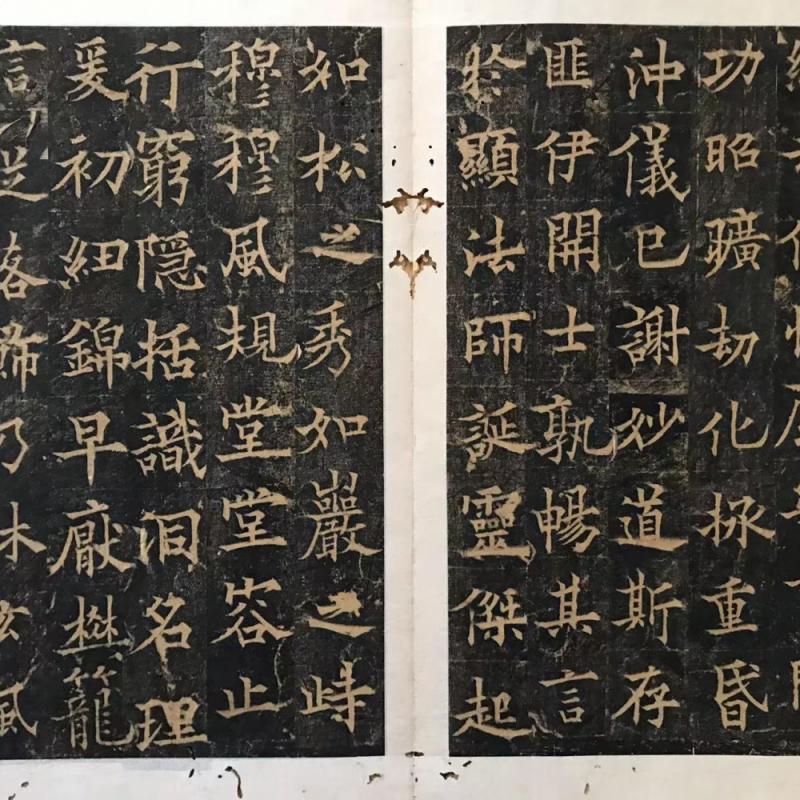 功昭曠劫化拯重昏
沖儀已謝妙道斯存
匪伊開士孰暢其言
於顯法師誕靈傑起
如松之秀如巖之峙
穆穆風規堂堂容止
行窮隱括識洞名理
爰初細錦早厭樊籠
言從落飾乃沐玄風